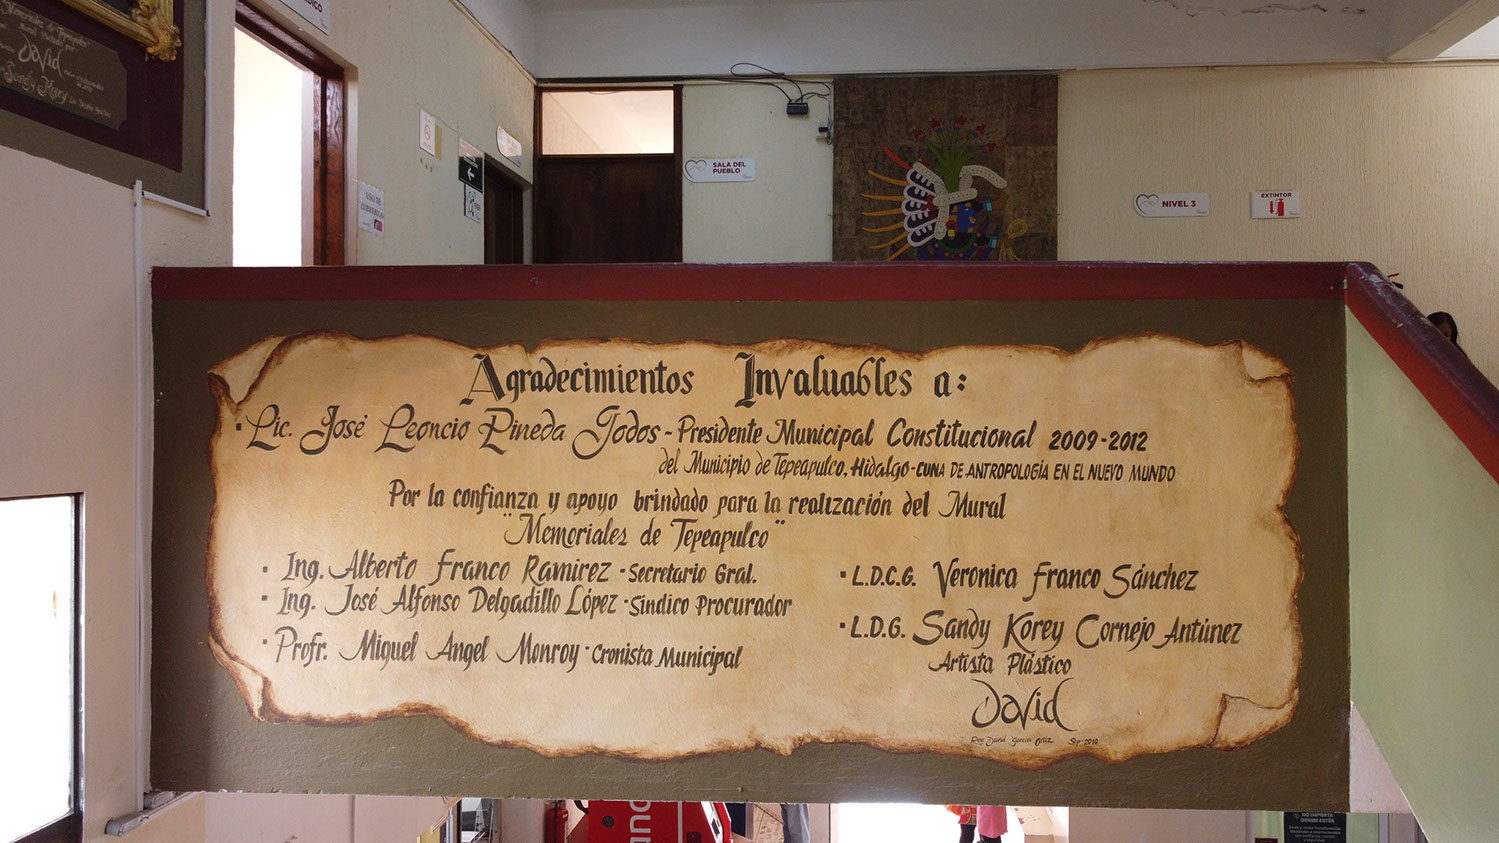 Memoriales de Tepeapulco
David
Sandy Korey
SALA DEL
PUEBLO
NIVEL 3
EXTINTOR
USO DE
Agradecimientos Invaluables a:
Lic. José Leoncio Pineda Godos - Presidente Municipal Constitucional 2009-2012
del Municipio de Tepeapulco, Hidalgo - CUNA DE ANTROPOLOGÍA EN EL NUEVO MUNDO
Por la confianza y apoyo brindado para la realización del Mural
"Memoriales de Tepeapulco"
Ing. Alberto Franco Ramirez - Secretario Gral.
Ing. José Alfonso Delgadillo López - Síndico Procurador
Profr. Miguel Angel Monroy - Cronista Municipal
L.D.C.G. Veronica Franco Sánchez
L.D.G. Sandy Korey Cornejo Antúnez
Artista Plástico
David
Rey David García Ortiz Sep-2010
NO IMPORTA
DONDE ESTÉS